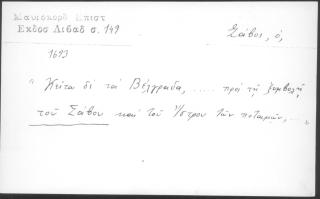 Μαυροκορδ Επιστ
Εκδος Λιβαδ σ. 149
Σάβος, ὁ,
1693
" Κεῖται δὲ τὰ Βελγράδα, ..... πρὸς τῇ ξυμβολῇ
τοῦ Σάβου καὶ τοῦ Ἴστρου τῶν ποταμῶν, ... "